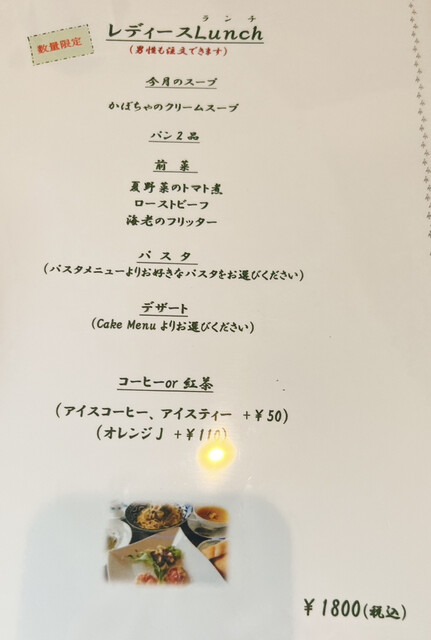 数量限定
ランチ
レディースLunch
(男性も注文できます)
今月のスープ
かぼちゃのクリームスープ
パン2品
前菜
夏野菜のトマト煮
ローストビーフ
海老のフリッター
パスタ
(パスタメニューよりお好きなパスタをお選びください)
デザート
(Cake Menuよりお選びください)
コーヒーor 紅茶
(アイスコーヒー、アイスティー +¥50)
(オレンジJ +¥110)
¥1800(税込)